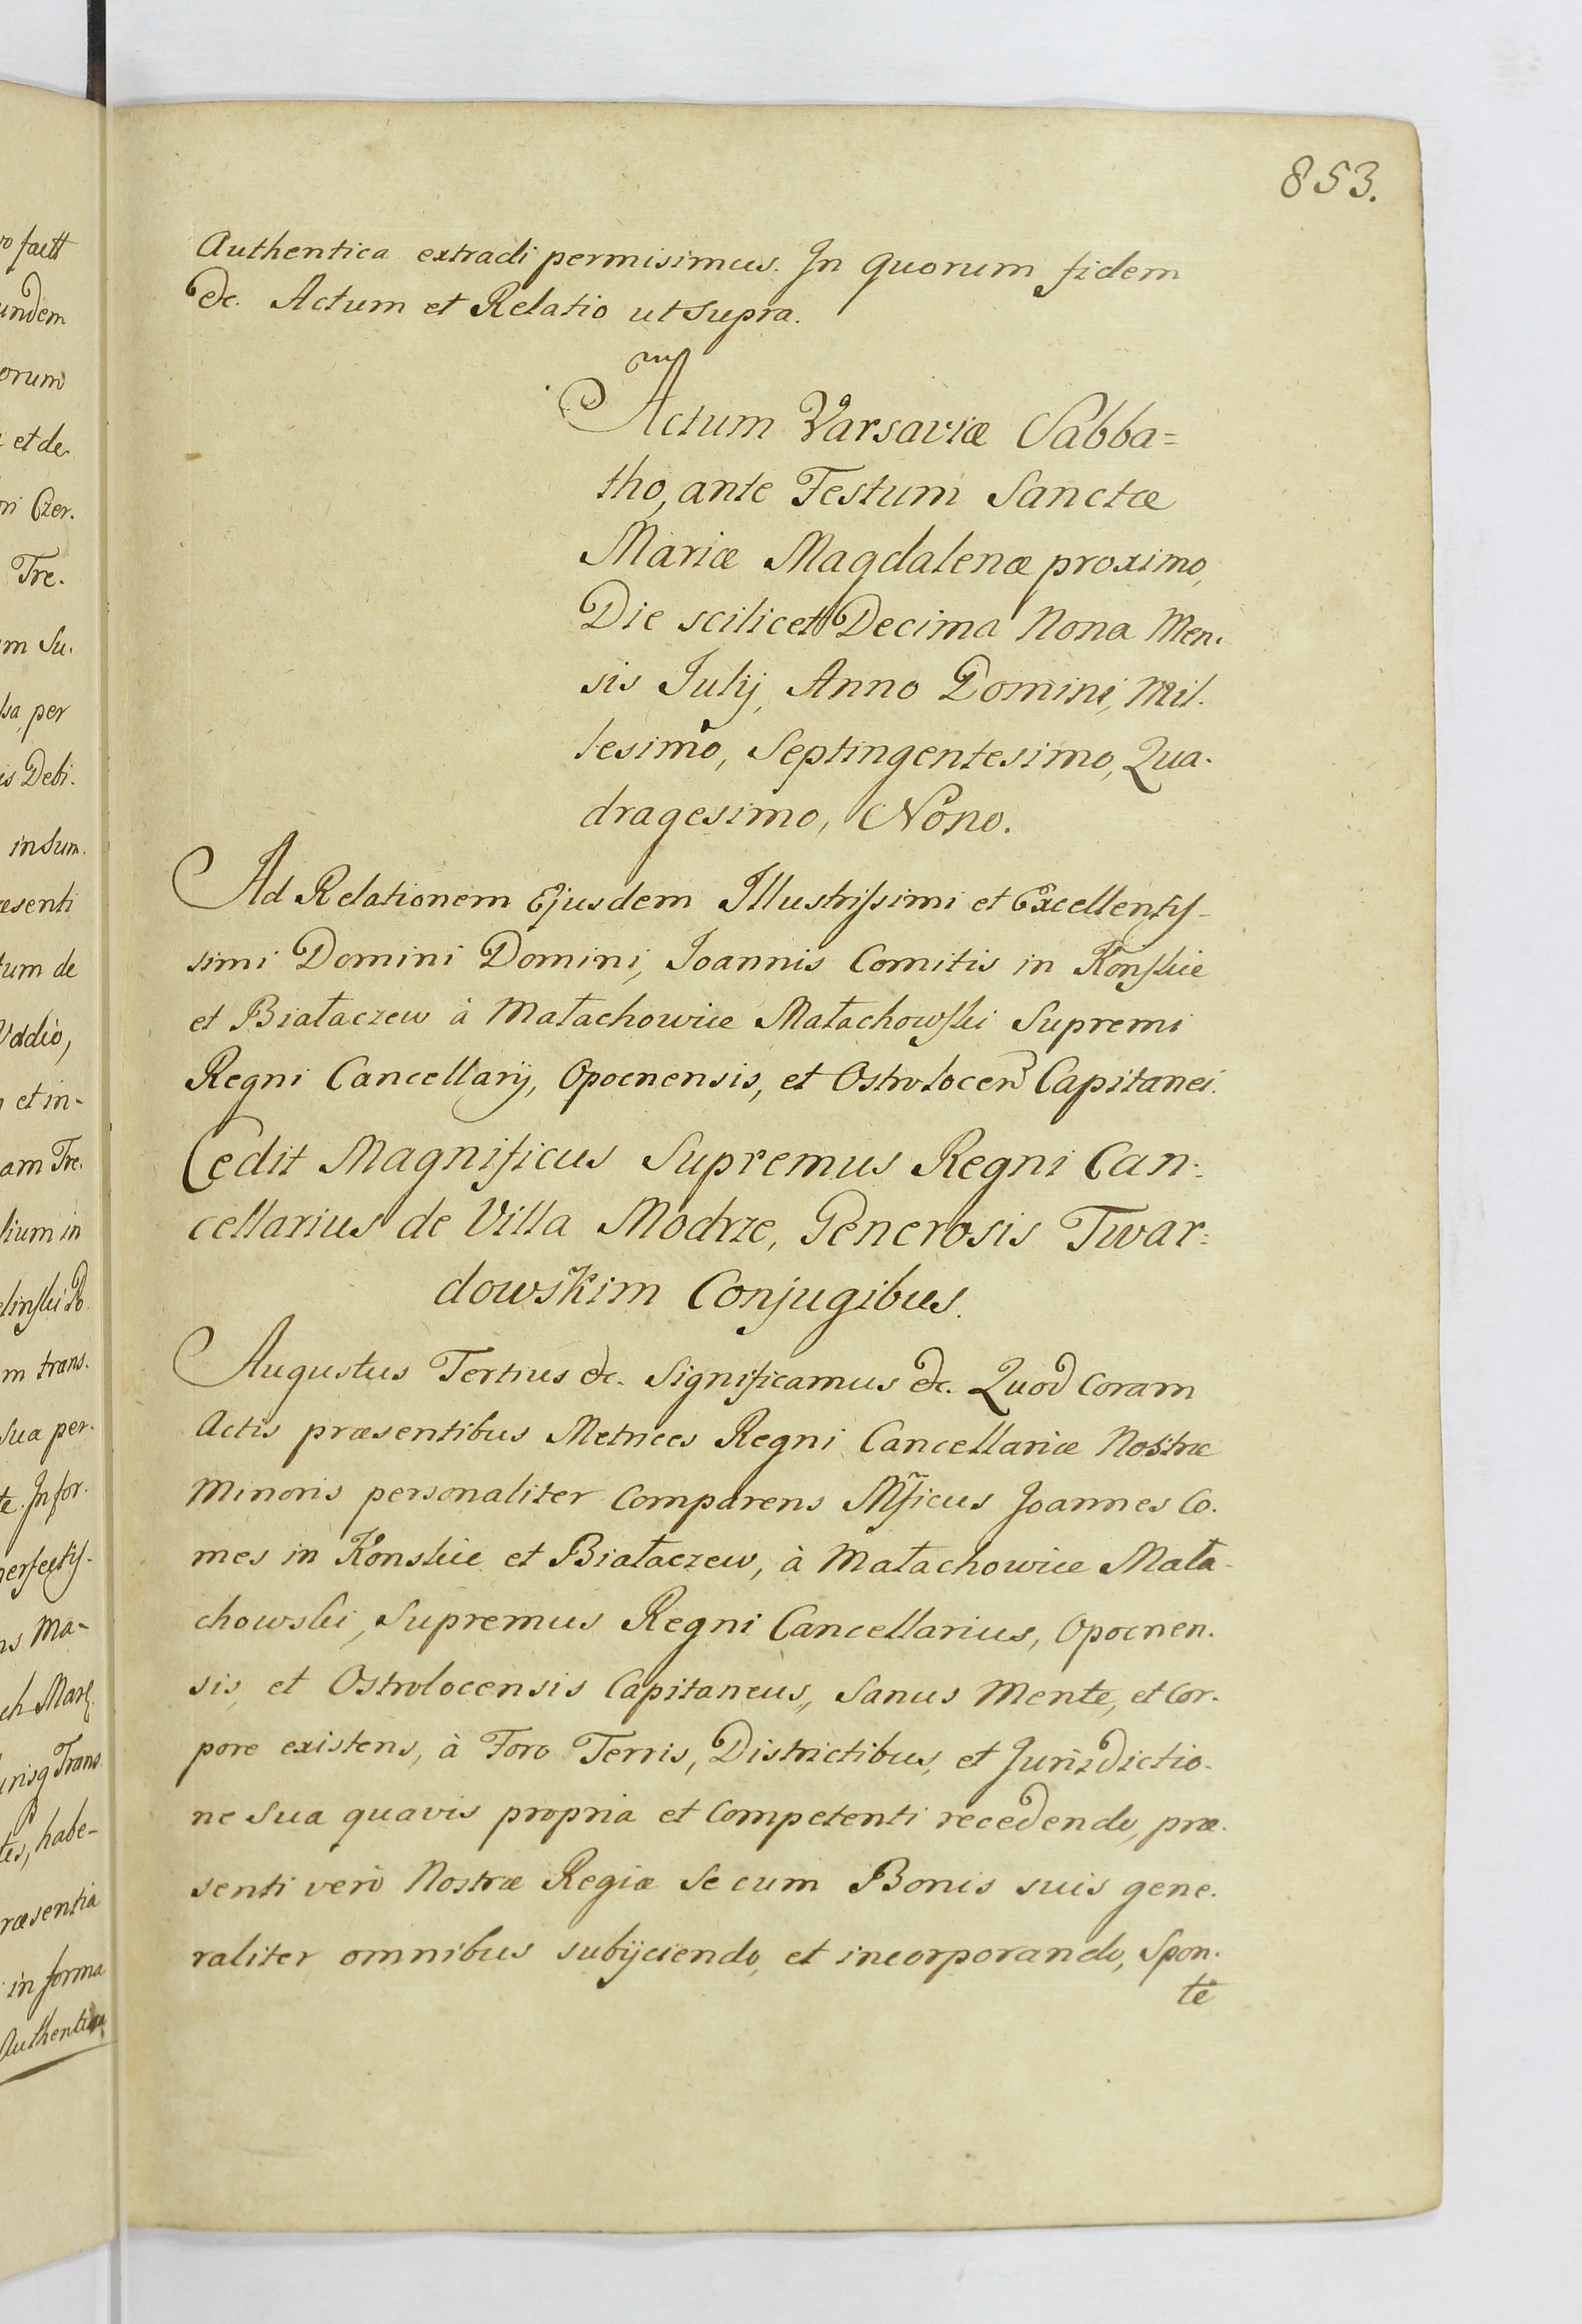 853.
Authentica extradi permisimus. In quorum fidem
etc. Actum et Relatio ut supra.
Actum Varsaviæ Sabba=
tho, ante Festum Sanctæ
Mariæ Magdalenæ proximo,
Die scilicet Decima Nona Men.
sis Julij, Anno Domini, Mil.
lesimo, Septingentesimo, Qua.
dragesimo, Nono.
Ad Relationem Ejusdem Illustrissimi et Excellentis-
simi Domini Domini, Joannis Comitis in Konskie
et Białaczew à Małachowice Małachowski Supremi
Regni Cancellarij, Opocnensis, et Ostrolocen Capitanei.
Cedit Magnificus Supremus Regni Can.
cellarius de Villa Modrze, Generosis Twar=
dowskim Conjugibus.
Augustus Tertius etc. Significamus etc. Quod coram
Actis præsentibus Metrices Regni Cancellariæ Nostræ
Minoris personaliter Comparens Mficus Joannes Co.
mes in Konskie et Białaczew, à Małachowice Mała-
chowski, Supremus Regni Cancellarius, Opocnen.
sis, et Ostrolocensis Capitaneus, Sanus Mente, et Cor.
pore existens, à Foro Terris, Districtibus, et Jurisdictio.
ne Sua quavis propria et Competenti recedendo, præ.
senti verò Nostræ Regiæ Se cum Bonis suis gene.
raliter omnibus subijciendo, et incorporando, Spon.
te
factt
undem
orum
et de
Czer.
Tre.
m Su.
per
is Debi.
insum.
esenti
tum de
Vadio,
et in-
am Tre.
lium in
linski
m trans.
Sua per.
te. In for.
perfectis-
ns Ma-
ch Mar
Trans.
tes, habe-
ræsentia
in forma
Authentica